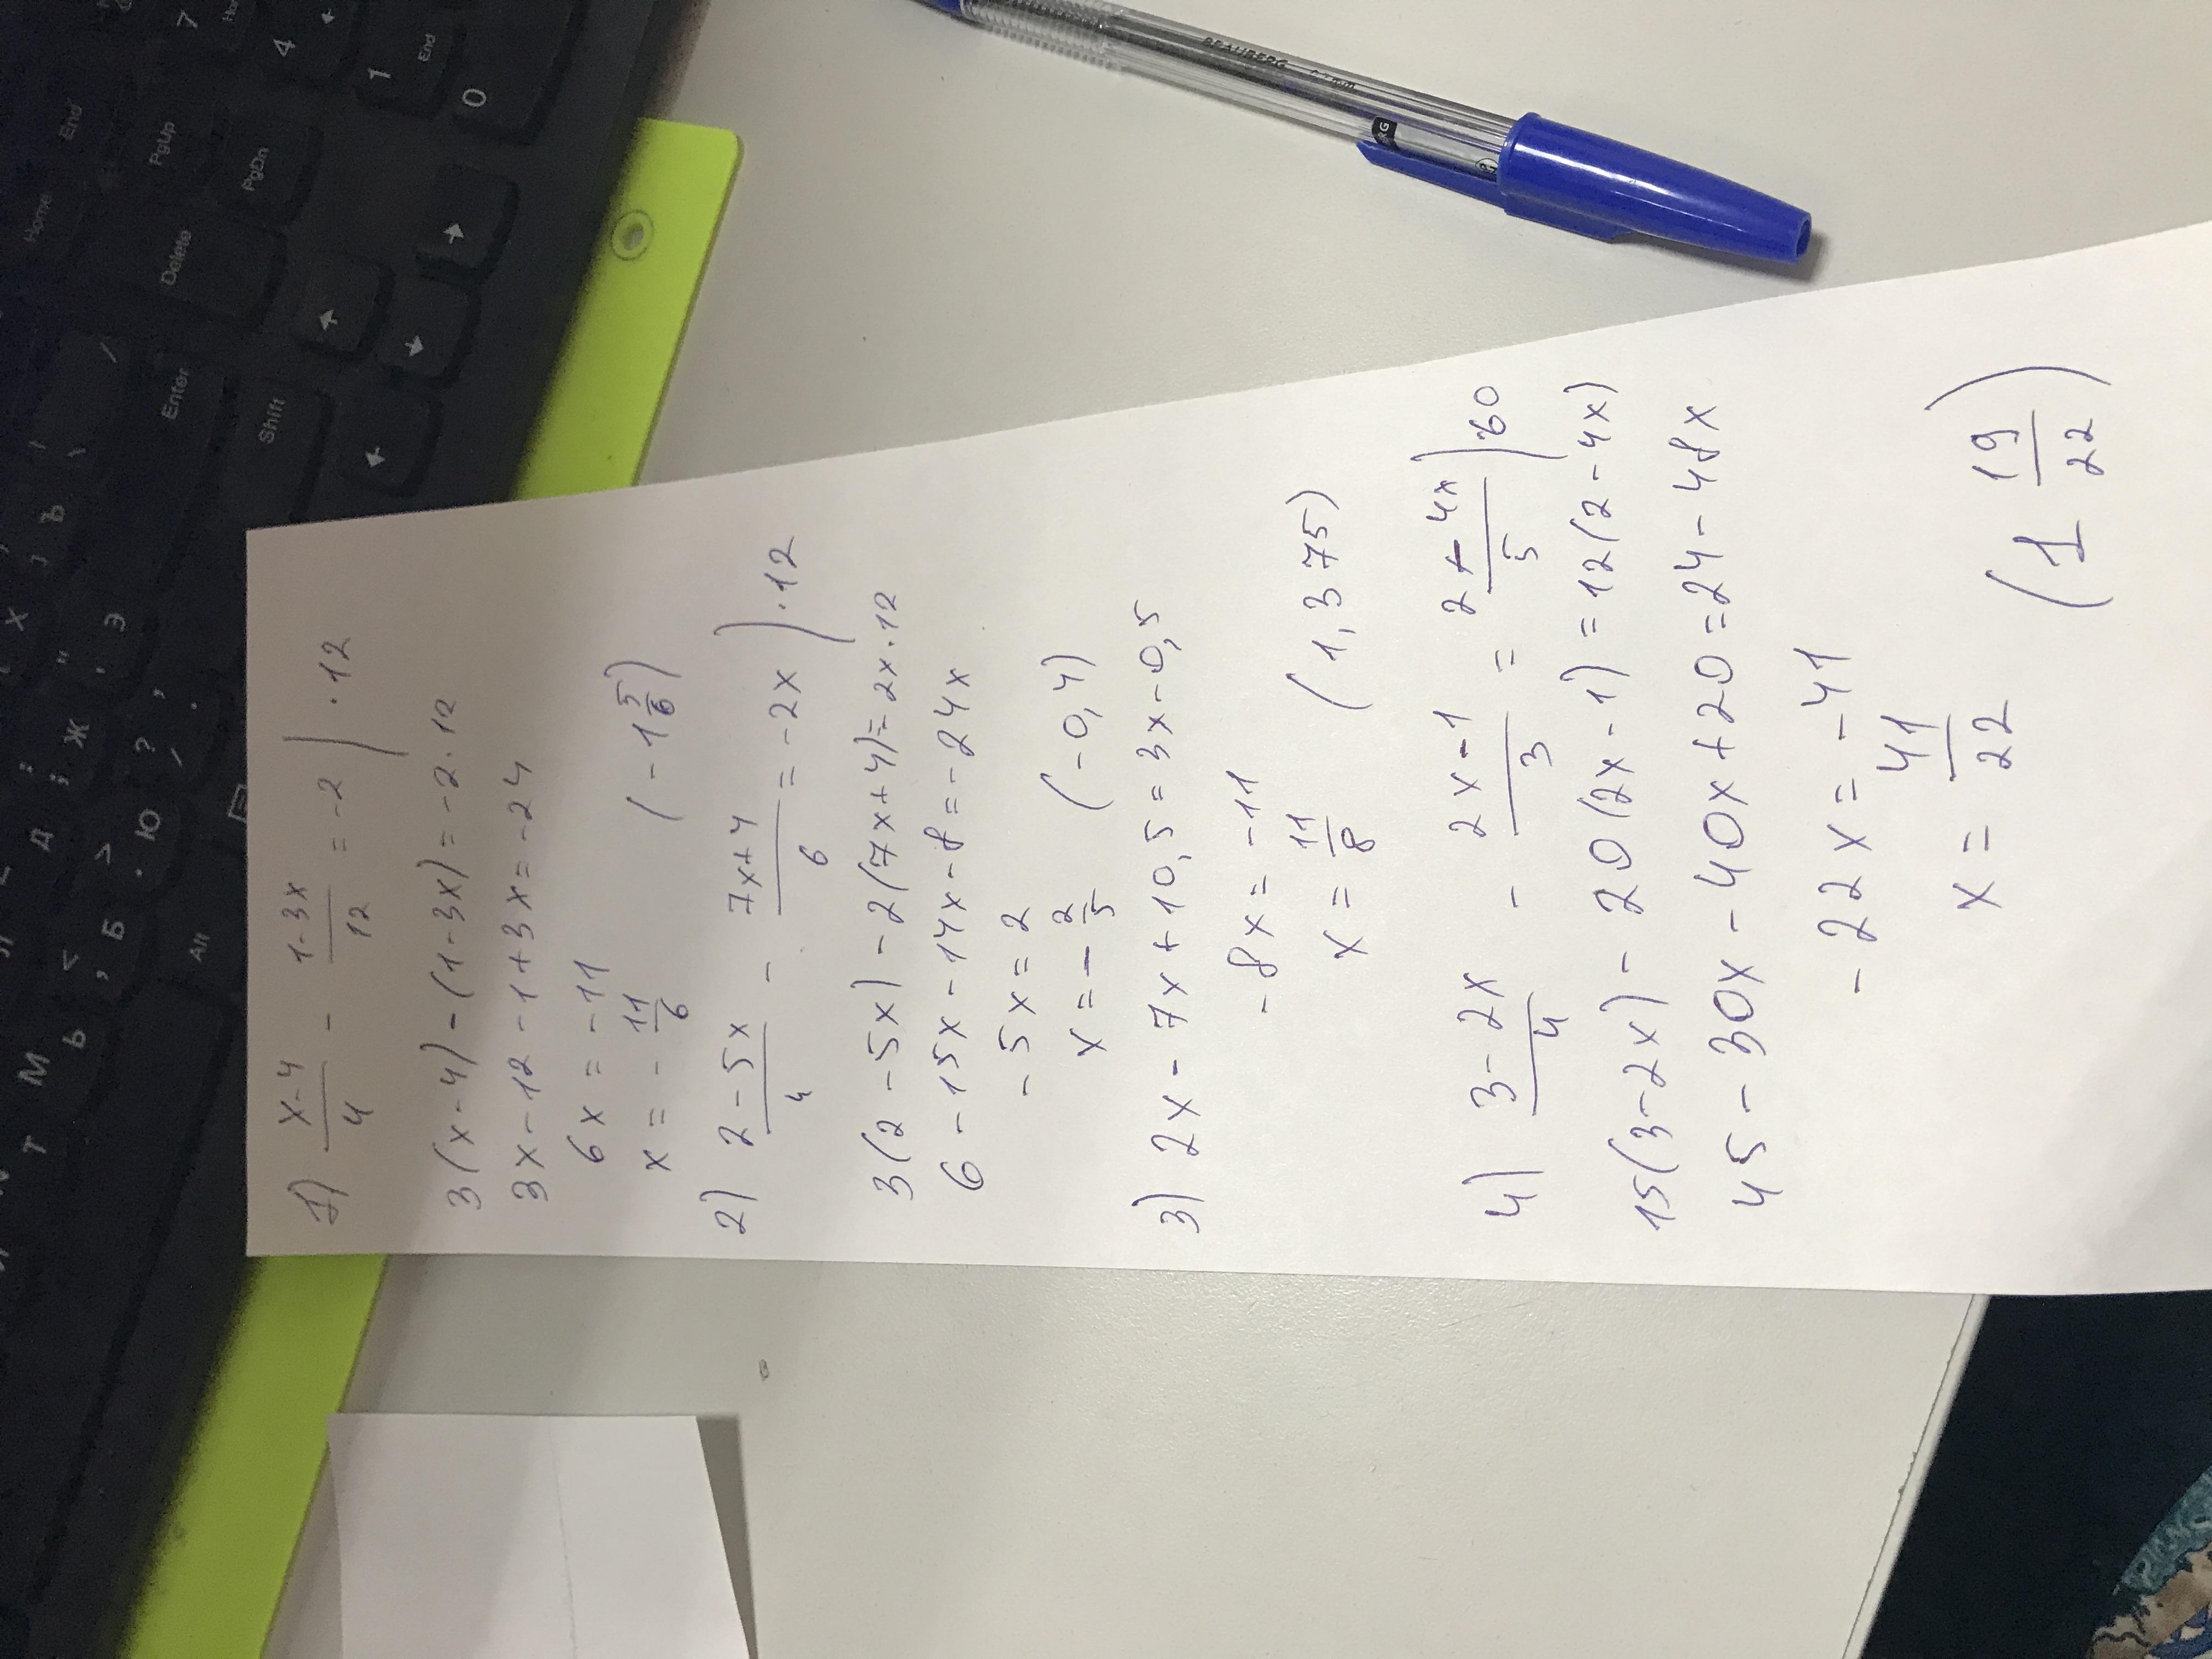 1) x-4/4 - 1-3x/12 = -2 | ·12
3(x-4)-(1-3x)=-2·12
3x-12-1+3x=-24
6x=-11
x=-11/6 (-1 5/6)
2) 2-5x/4 - 7x+4/6 = -2x | ·12
3(2-5x)-2(7x+4)=2x·12
6-15x-14x-8=-24x
-5x=2
x=-2/5 (-0,4)
3) 2x-7x+10,5=3x-0,5
-8x=-11
x=11/8 (1,375)
4) 3-2x/4 - 2x-1/3 = 2+4x/5 | 60
15(3-2x)-20(2x-1)=12(2-4x)
45-30x-40x+20=24-48x
-22x=-41
x=41/22 (1 19/22)
7
4
1
End
0
Home
End
PgUp
PgDn
Delete
Enter
Shift
Alt
BRAUBERG
RG